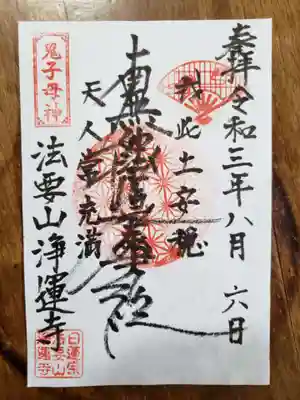 奉拝
令和三年八月六日
我此土安穏
南無妙法蓮華経
天人常充満
鬼子母神
法要山浄運寺
日蓮宗
法要山
浄運寺